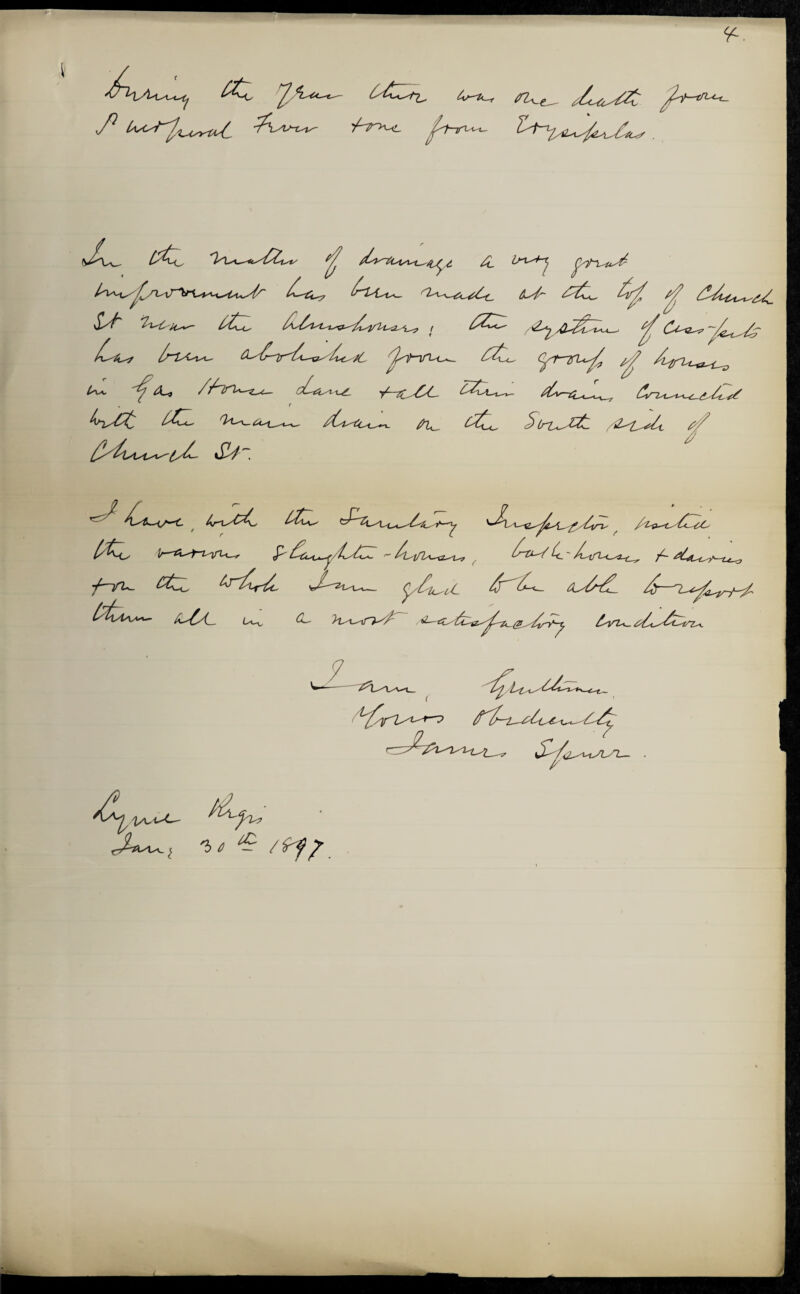 4.
During the Year there was one death from
Puerperal Fever & one from Erysipelas.
In the matter of drainage a very great
improvement has been made at the top of Church
St near the Almshouses; the system of Cess-pits
has been abolished from the group of houses
in Gas House Lane & all their drains Connected
with the main drain on the South side of
Church St.
I have, with the Sanitary Inspector, visited
the various Slaughter-houses, bake-houses & dairies
& on the whole I am glad to be able to report
them all in a most satisfactory condition
I am, Gentlemen,
Yours Obediently
James Spurr.
Lyme Regis
Jany 30th 1897.